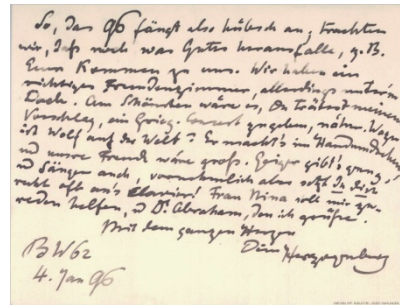 So, das 96 fängt also hübsch an; trachten
wir, daß noch was Gutes herausfalle, z.B.
Euer Kommen zu uns. Wir haben ein
richtiges Fremdenzimmer, allerdings unterm
Dach. Am Schönsten wäre es, Du trätest meinem
Vorschlag, ein Grieg-Concert zu geben, näher. Wozu
ist Wolf auf der Welt? Er macht's im Handumdrehen
und unsre Freude wäre groß. Geiger gibt's genug,
u Sänger auch, vornehmlich aber setzt Du Dich
recht oft an's Clavier! Frau Nina soll mir
reden helfen, u Dr. Abraham, den ich grüße.
Mit dem ganzen Herzen
Dein Herzogenberg
BW62
4. Jan 96